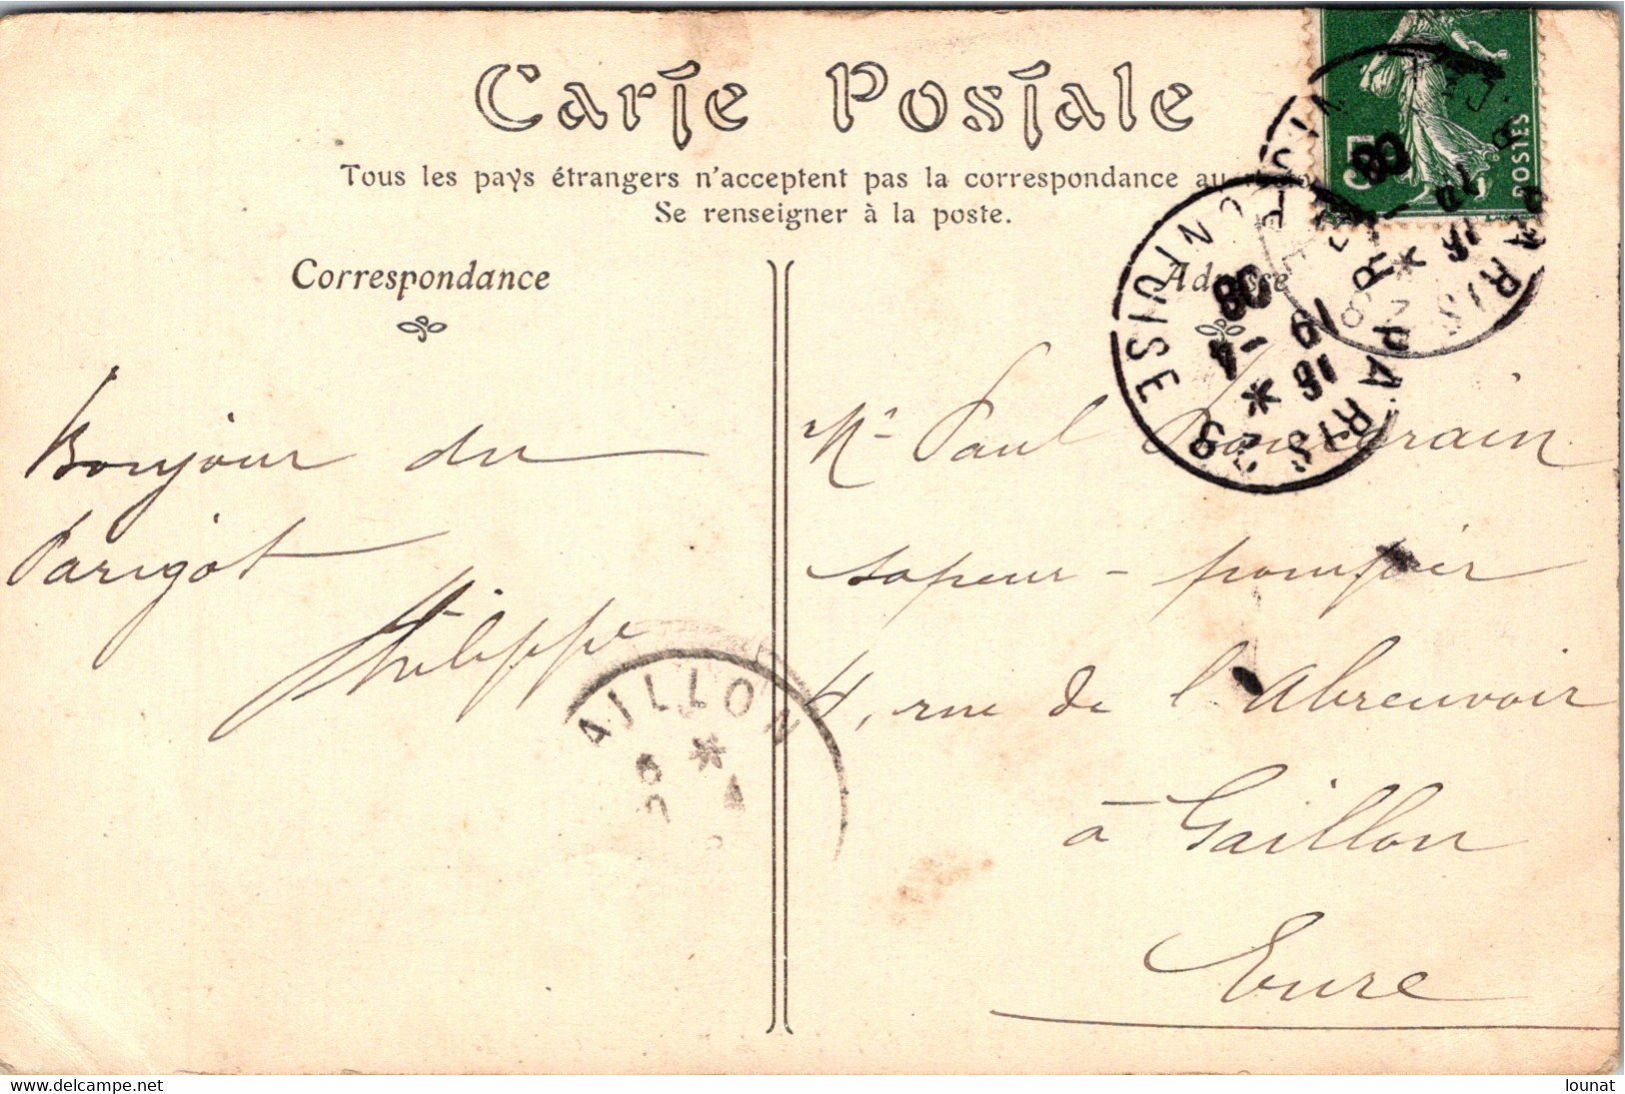 Carte Postale
Tous les pays étrangers n'acceptent pas la correspondance au
Se renseigner à la poste.
Correspondance
Adresse
Bonjour du
Parigot
Philippe
Mr Paul
sapeur - pompier
4, rue de l'Abreuvoir
à Gaillon
Eure
5
POSTES
PARIS
R. CONFUISE
08
PARIS
08
AILLON
www.delcampe.net
lounat